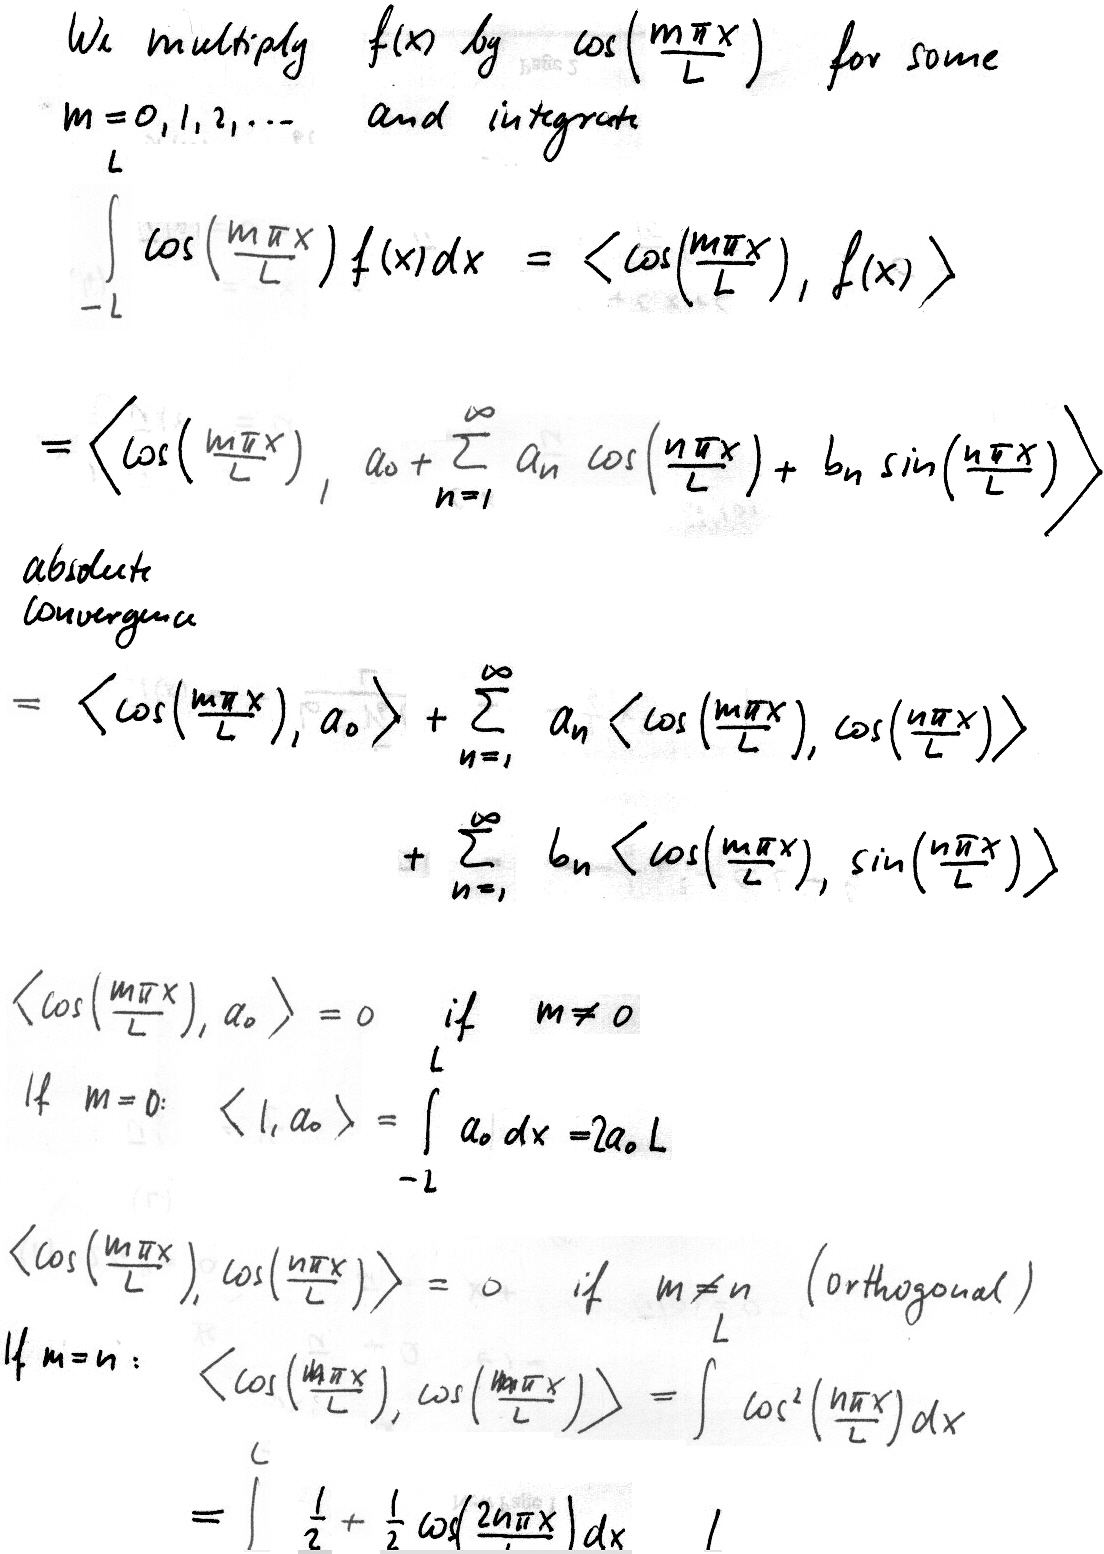 We multiply f(x) by cos(mπx/L) for some
m = 0, 1, 2, ... and integrate
∫_{-L}^{L} cos(mπx/L) f(x) dx = <cos(mπx/L), f(x)>
= <cos(mπx/L), a₀ + Σ_{n=1}^{∞} aₙ cos(nπx/L) + bₙ sin(nπx/L)>
absolute
convergence
= <cos(mπx/L), a₀> + Σ_{n=1}^{∞} aₙ <cos(mπx/L), cos(nπx/L)>
+ Σ_{n=1}^{∞} bₙ <cos(mπx/L), sin(nπx/L)>
<cos(mπx/L), a₀> = 0 if m ≠ 0
If m = 0: <1, a₀> = ∫_{-L}^{L} a₀ dx = 2a₀L
<cos(mπx/L), cos(nπx/L)> = 0 if m ≠ n (orthogonal)
If m = n: <cos(mπx/L), cos(nπx/L)> = ∫^{L} cos²(nπx/L) dx
= ∫^{L} 1/2 + 1/2 cos(2nπx/L) dx